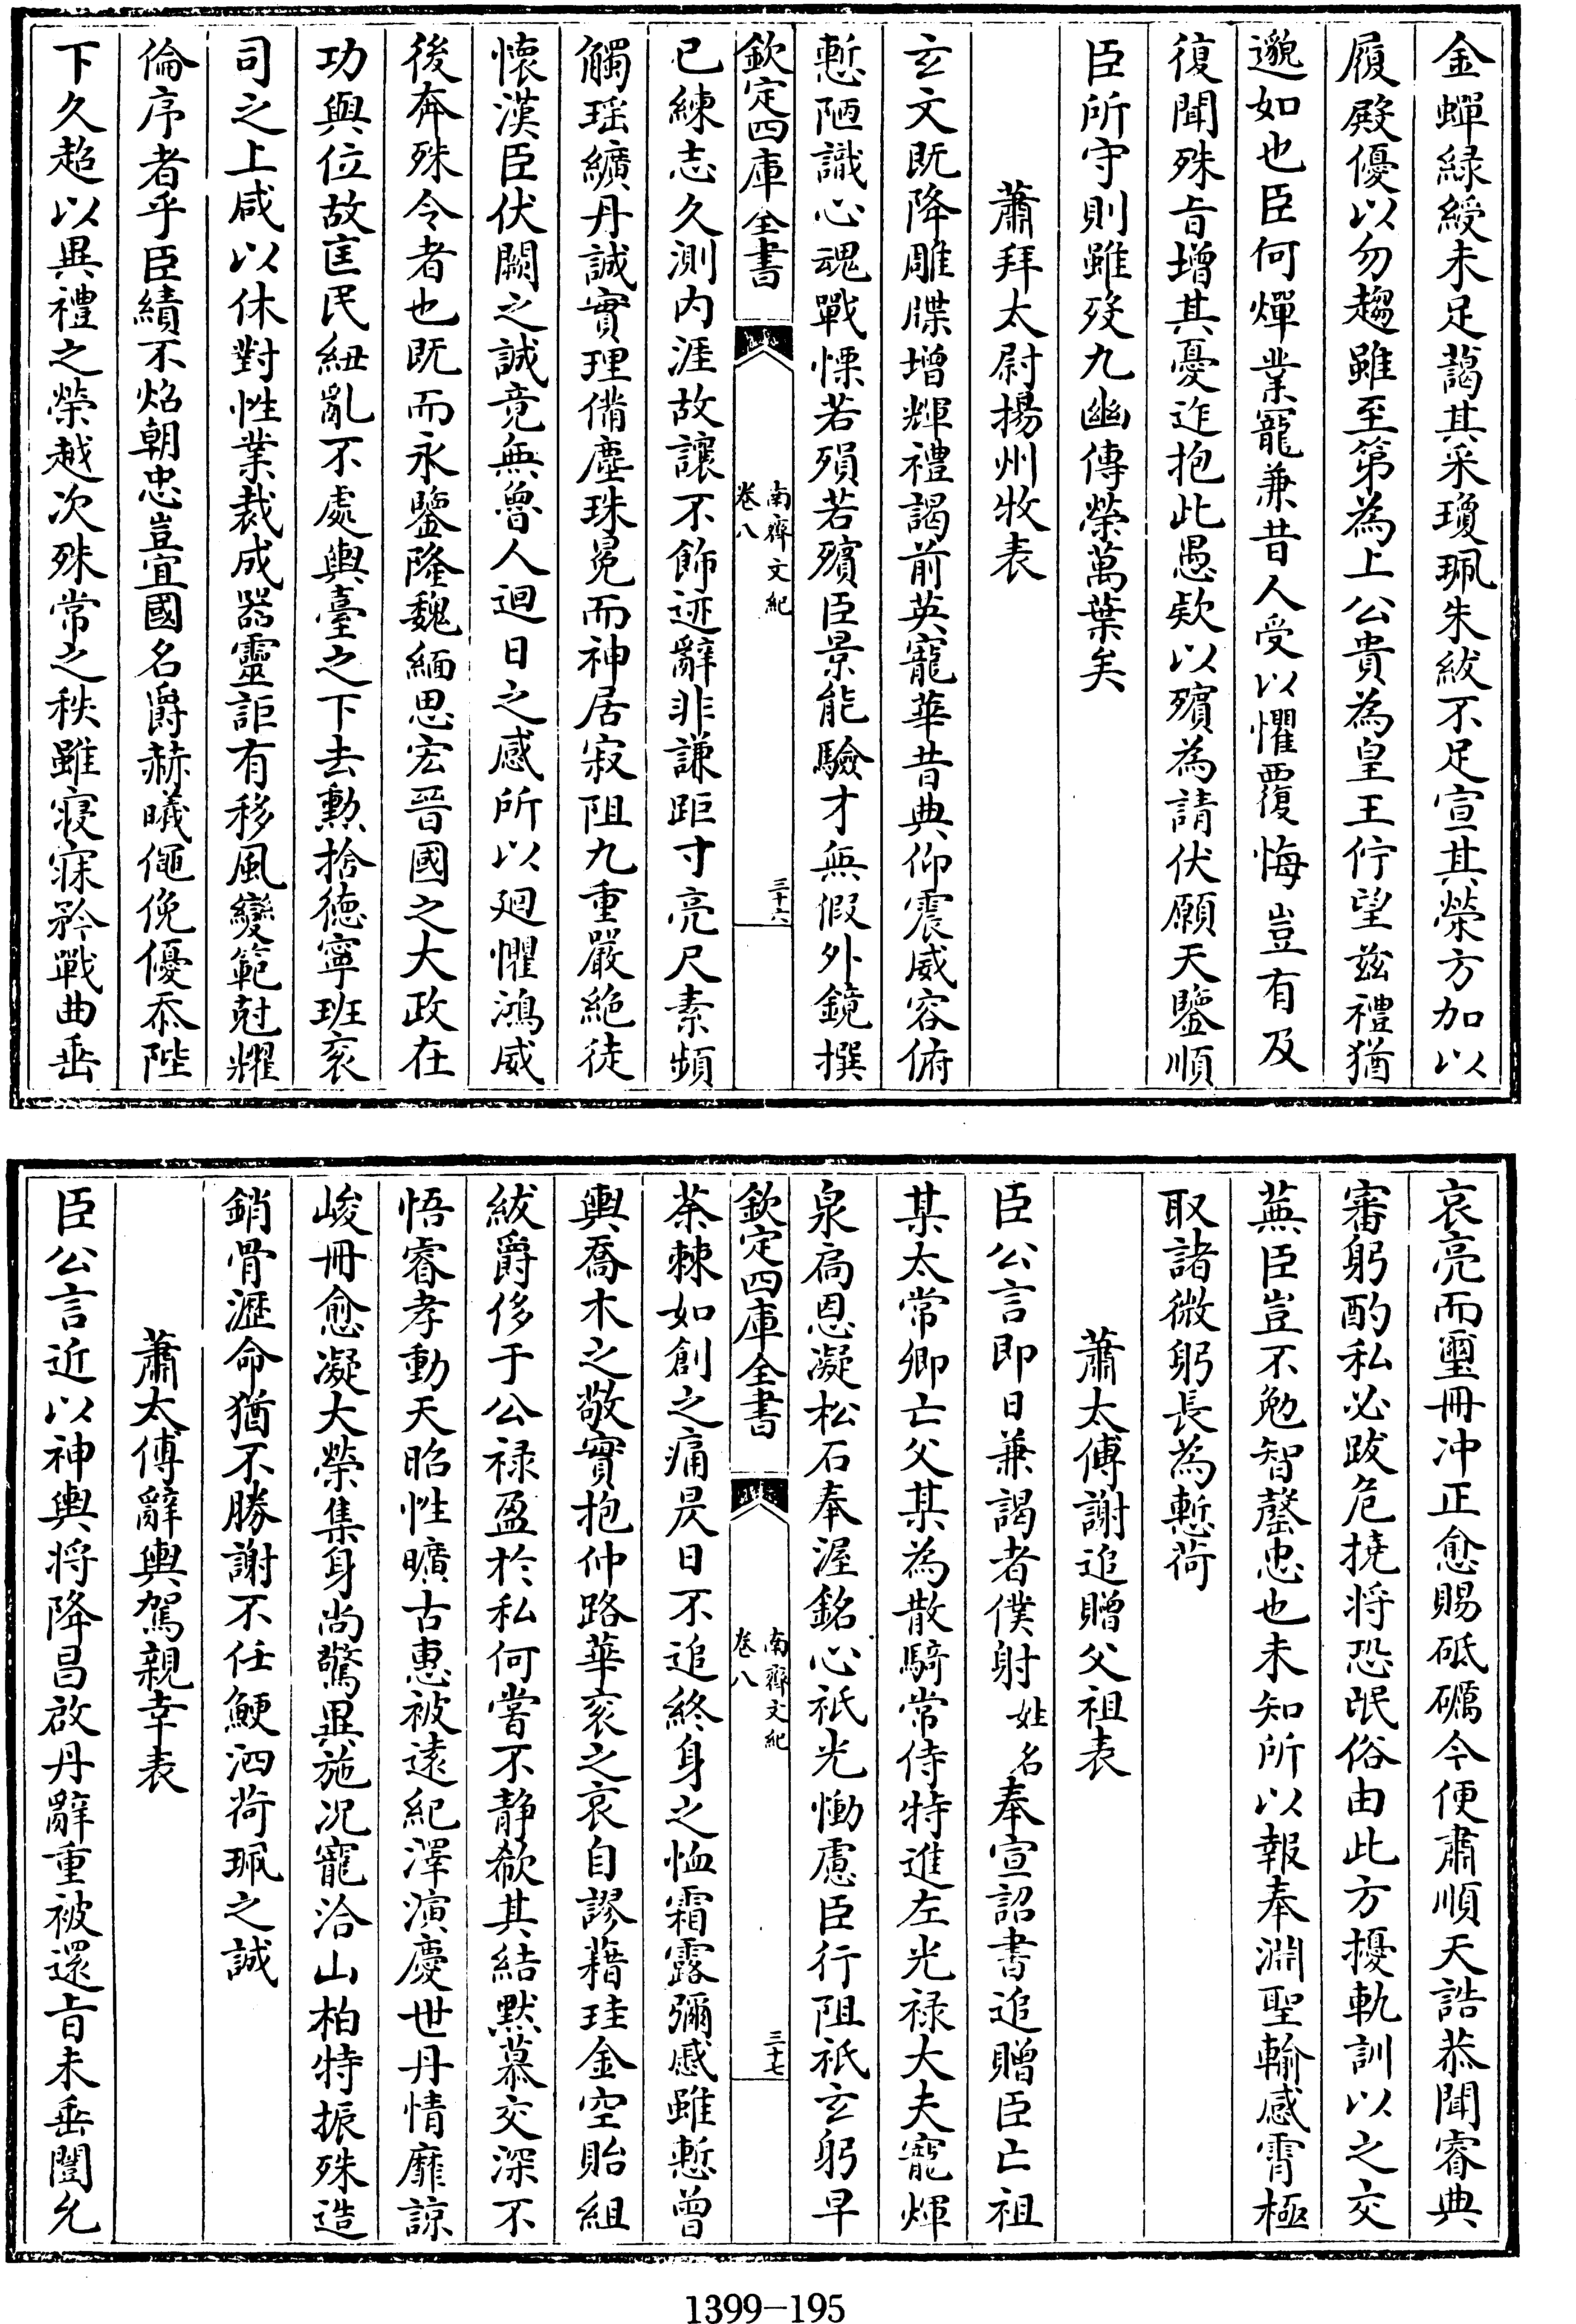 金蟬緑綬未足藹其采瓊珮朱紱不足宣其榮方加以
履殿優以勿趨雖至第為上公貴為皇王佇望兹禮猶
邈如也臣何燀業寵兼昔人受以懼覆悔豈有及
復聞殊㫖增其憂迮抱此愚欵以殯為請伏願天鑒順
臣所守則雖歿九幽傳榮萬葉矣
蕭拜太尉揚州牧表
玄文既降雕牒增輝禮謁前英寵華昔典仰震威容俯
慙陋識心魂戰慄若殞若殯臣景能驗才無假外鏡撰
欽定四庫全書
南齊文紀
卷八
三十六
已練志久測内涯故讓不飾迹辭非謙距寸亮尺素頻
觸瑶纊丹誠實理備塵珠冕而神居寂阻九重嚴絶徒
懷漢臣伏闕之誠竟無魯人迴日之感所以廻懼鴻威
後奔殊令者也既而永鑒隆魏緬思宏晉國之大政在
功與位故匡民紐亂不處輿臺之下去勲捨德寧班衮
司之上咸以休對性業裁成器靈詎有移風變範尅耀
倫序者乎臣績不焰朝忠豈宣國名爵赫曦僶俛優忝陛
下久超以異禮之榮越次殊常之秩雖寢寐矜戰曲垂
哀亮而璽冊冲正愈賜砥礪今便肅順天誥恭聞睿典
審躬酌私必跋危撓将恐氓俗由此方擾軌訓以之交
蕪臣豈不勉智罄忠也未知所以報奉淵聖輸感霄極
取諸微躬長為慙荷
蕭太傅謝追贈父祖表
臣公言即日兼謁者僕射姓名奉宣詔書追贈臣亡祖
某太常卿亡父某為散騎常侍特進左光禄大夫寵煇
泉扃恩凝松石奉渥銘心祇光慟慮臣行阻祇玄躬早
欽定四庫全書
南齊文紀
卷八
三十七
荼棘如創之痛昃日不追終身之恤霜露彌感雖慙曾
輿喬木之敬實抱仲路華衮之哀自謬藉珪金空貽組
紱爵侈于公禄盈於私何嘗不静欷其結黙慕交深不
悟睿孝動天昭性曠古惠被遠紀澤演慶世丹情靡諒
峻冊愈凝大榮集身尚驚異施况寵洽山柏特振殊造
銷骨瀝命猶不勝謝不任鯁泗荷珮之誠
蕭太傅辭輿駕親幸表
臣公言近以神輿将降昌啟丹辭重被還㫖未垂闓允
1399-195